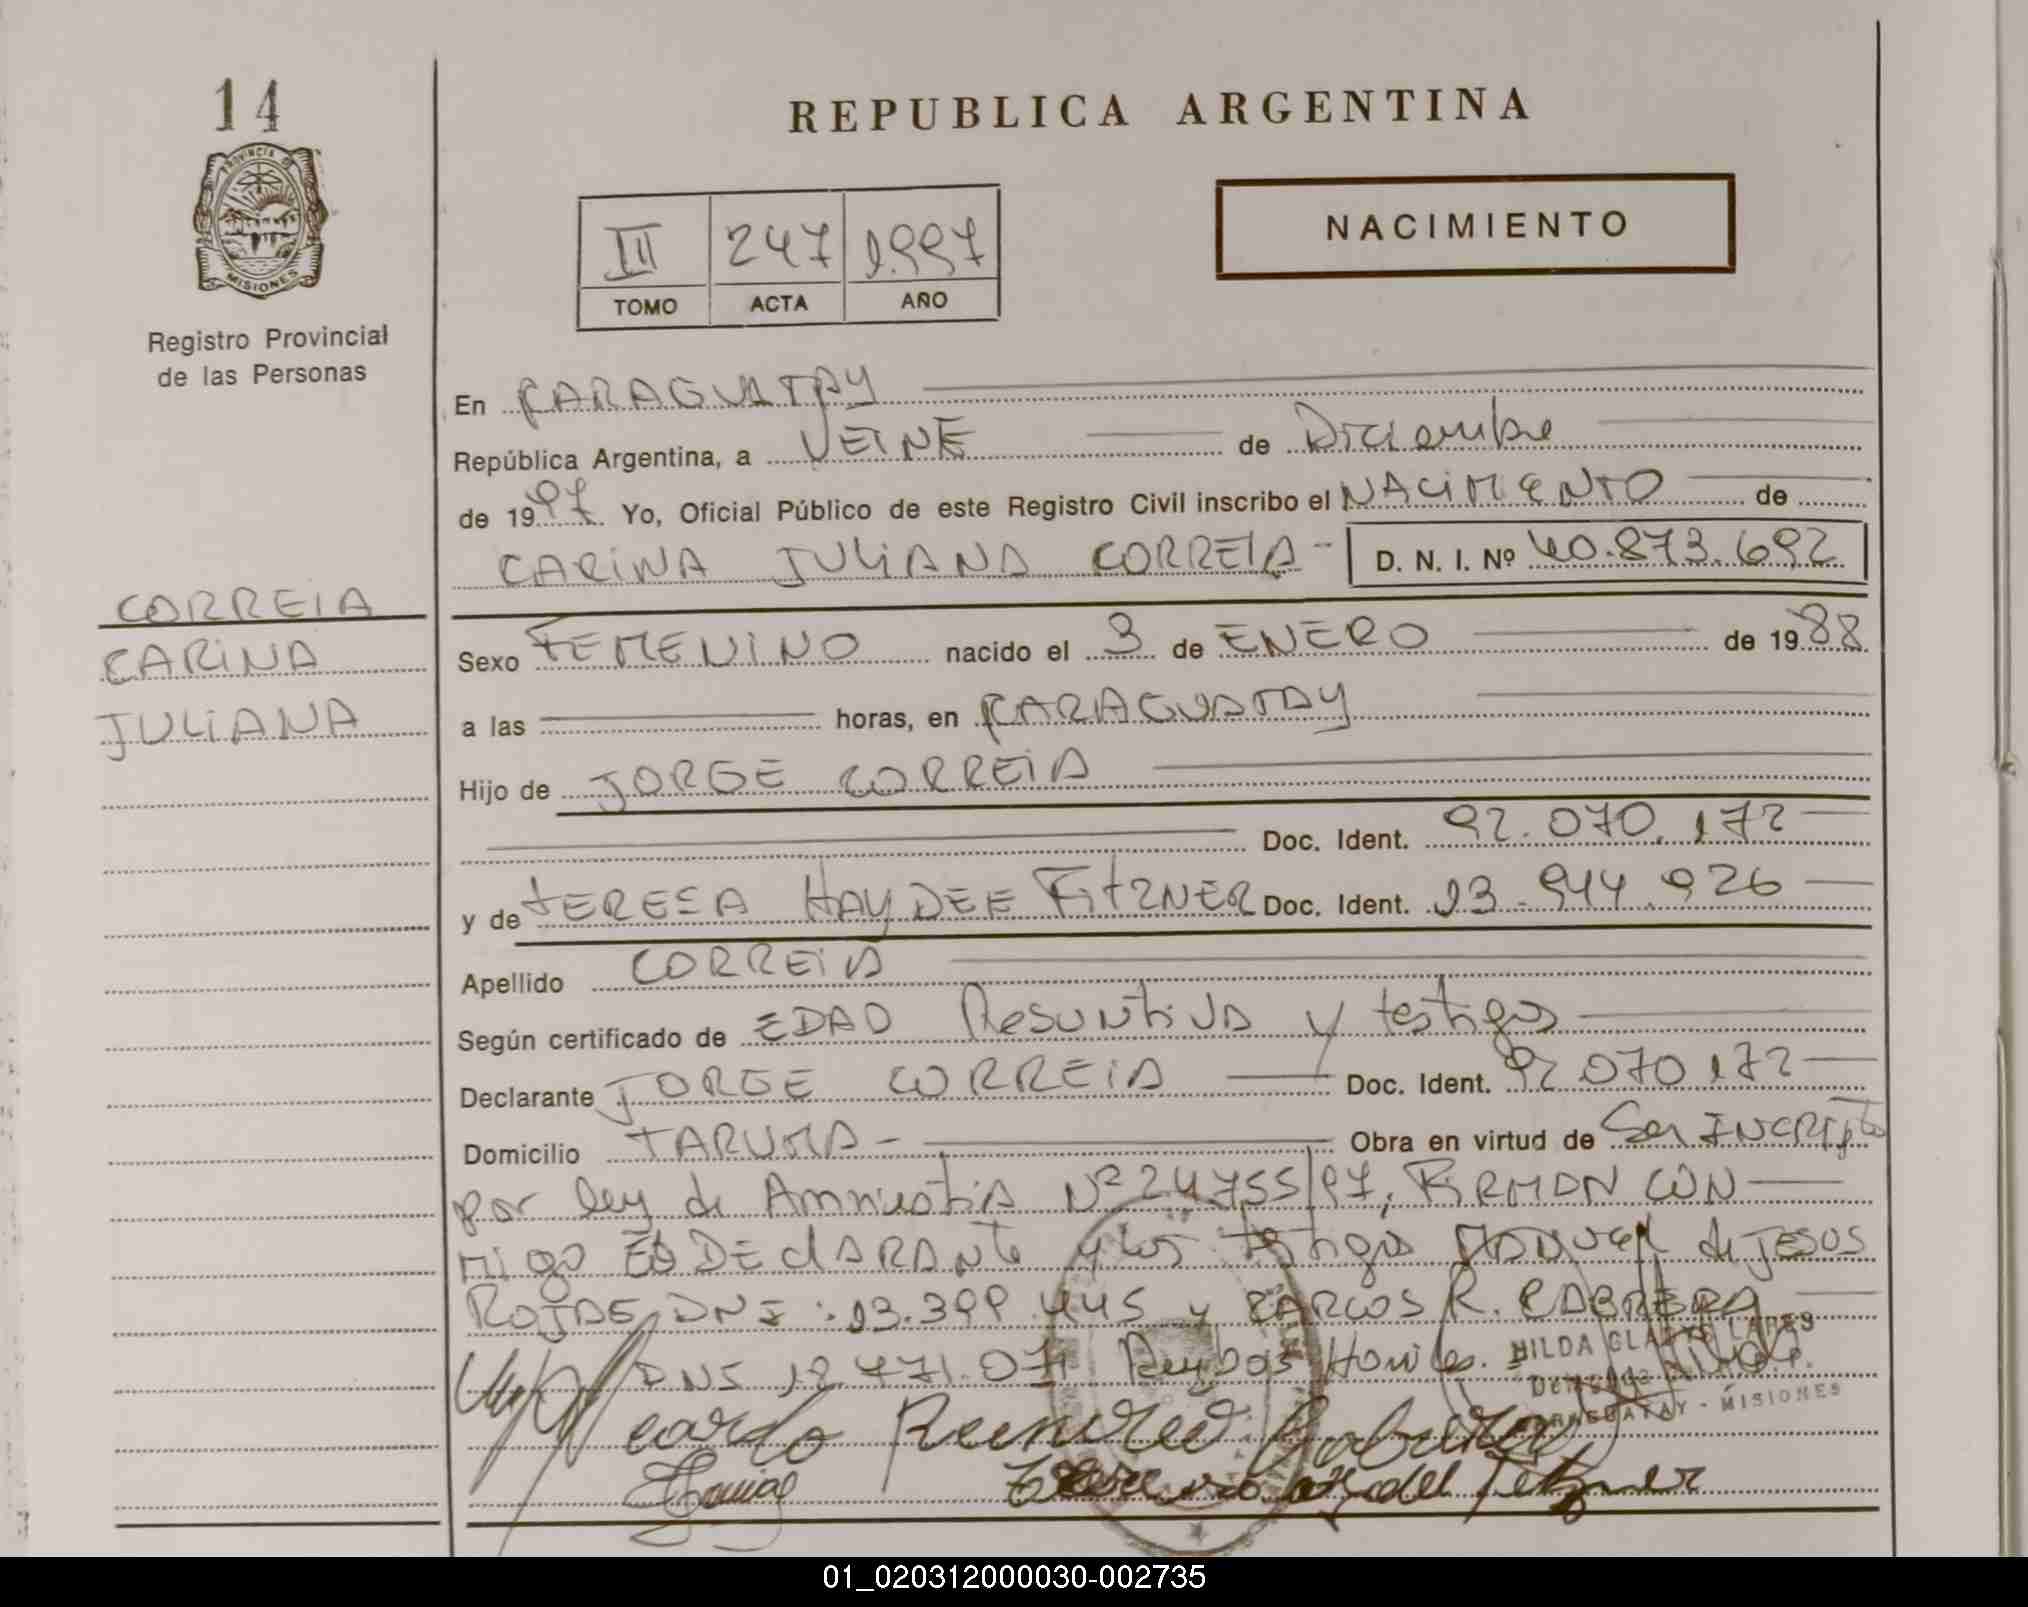 14
PROVINCIA DE
MISIONES
Registro Provincial
de las Personas
REPUBLICA ARGENTINA
III 247 1997
TOMO ACTA AÑO
NACIMIENTO
En CARAGUATAY
República Argentina, a VEINE de Diciembre
de 1997 Yo, Oficial Público de este Registro Civil inscribo el NACIMIENTO de
CARINA JULIANA CORREIA - D. N. I. Nº 40.873.692
CORREIA
CARINA
JULIANA
Sexo FEMENINO nacido el 3 de ENERO de 1988
a las horas, en CARAGUATAY
Hijo de JORGE CORREIA
Doc. Ident. 92.070.172
y de TERESA HAYDEE FITZNER Doc. Ident. 13.944.926
Apellido CORREIA
Según certificado de EDAD Presuntiva y testigos
Declarante JORGE CORREIA Doc. Ident. 92 070 172
Domicilio TARUMA - Obra en virtud de Ser INCRIPTO
por ley de Amnistia Nº 24755/97, FIRMAN CON
migo El DEClARANte y los testigos MANUEL de JESUS
ROJAS DNI: 13.399.445 y CARLOS R. CABRERA
DNI 12.471.071
HILDA GLADYS
CARAGUATAY - MISIONES
01_020312000030-002735